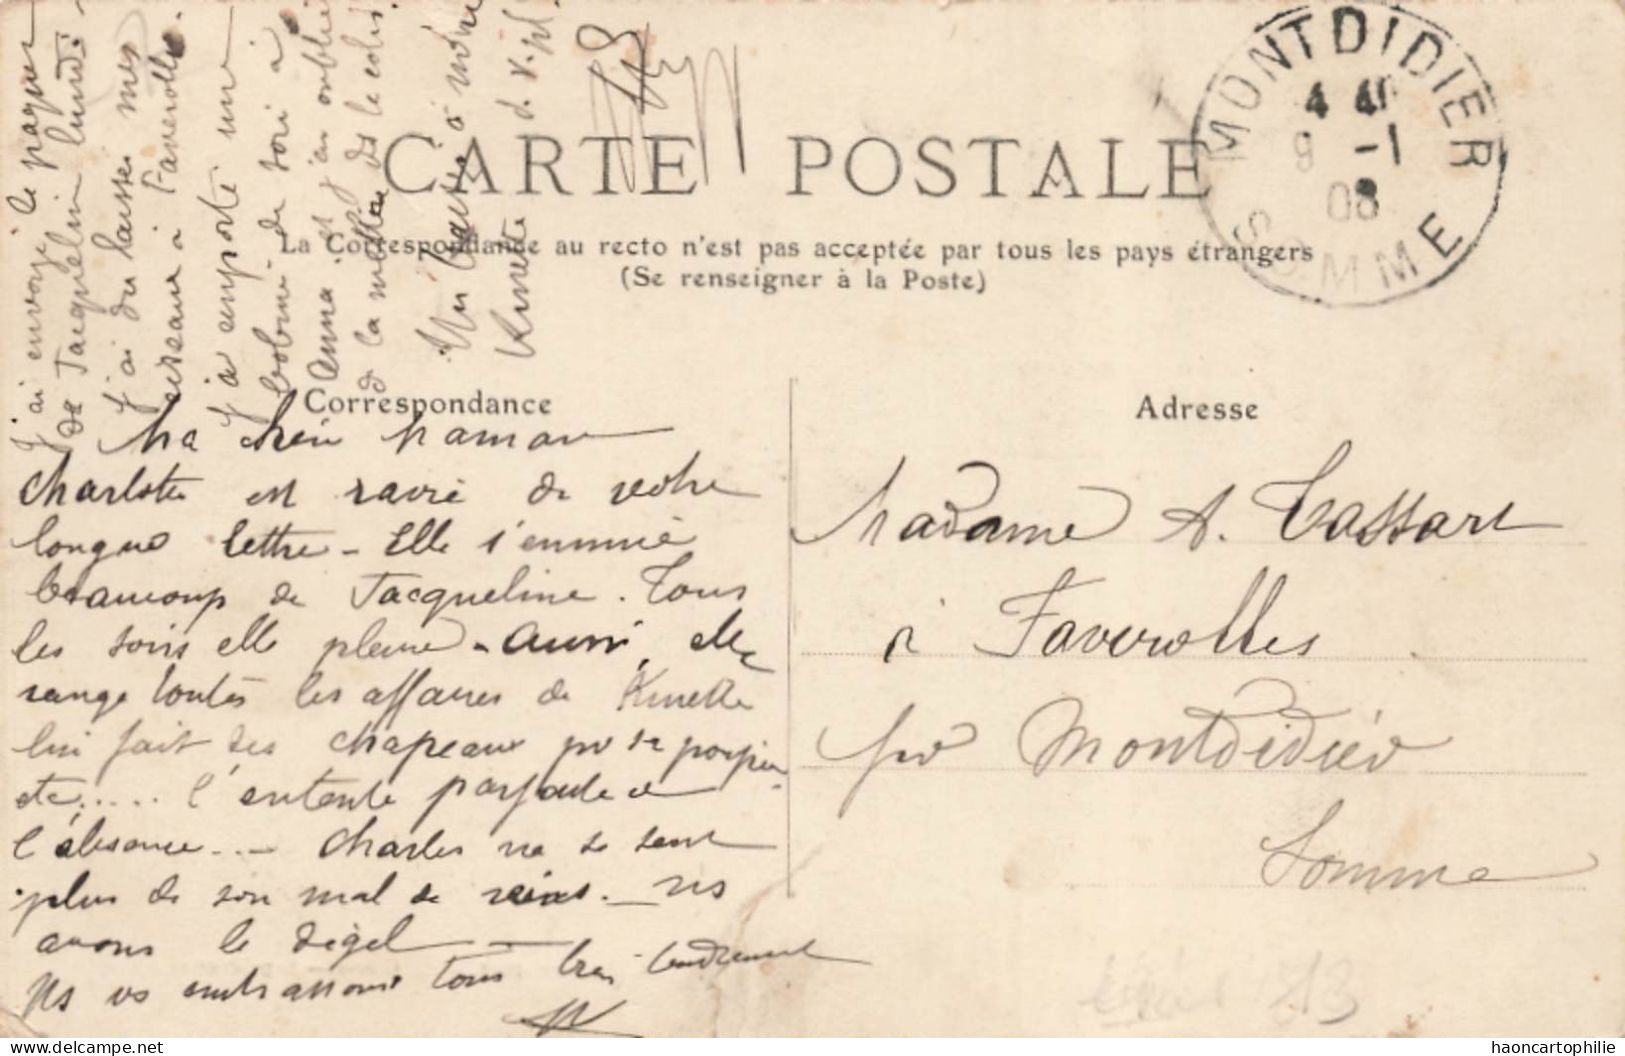 J'ai envoyé le paquet
de Jacqueline lundi.
J'ai du laisser mes
ciseaux à Faverolles
J'ai emporté une
bobine de soie à
Anna et j'ai oublié
de la mettre ds le colis.
Un baiser à
Kinette d. v. pl.
CARTE POSTALE
La Correspondance au recto n'est pas acceptée par tous les pays étrangers
(Se renseigner à la Poste)
MONTDIDIER
4 40
9 -1
08
SOMME
Correspondance
Adresse
Ma chère Maman
Charlotte est ravie de votre
longue lettre - Elle s'ennuie
beaucoup de Jacqueline. Tous
les soirs elle pleure - aussi, elle
range toutes les affaires de Kinette
lui fait des chapeaux pr sa poupée
etc..... l'entente parfaite
l'absence... - Charles ne se sent
plus de son mal de reins. - ns
avons le dégel -
Ns vs embrassons tous très tendrement
Madame A. Tassart
à Faverolles
par Montdidier
Somme
© haoncartophilie